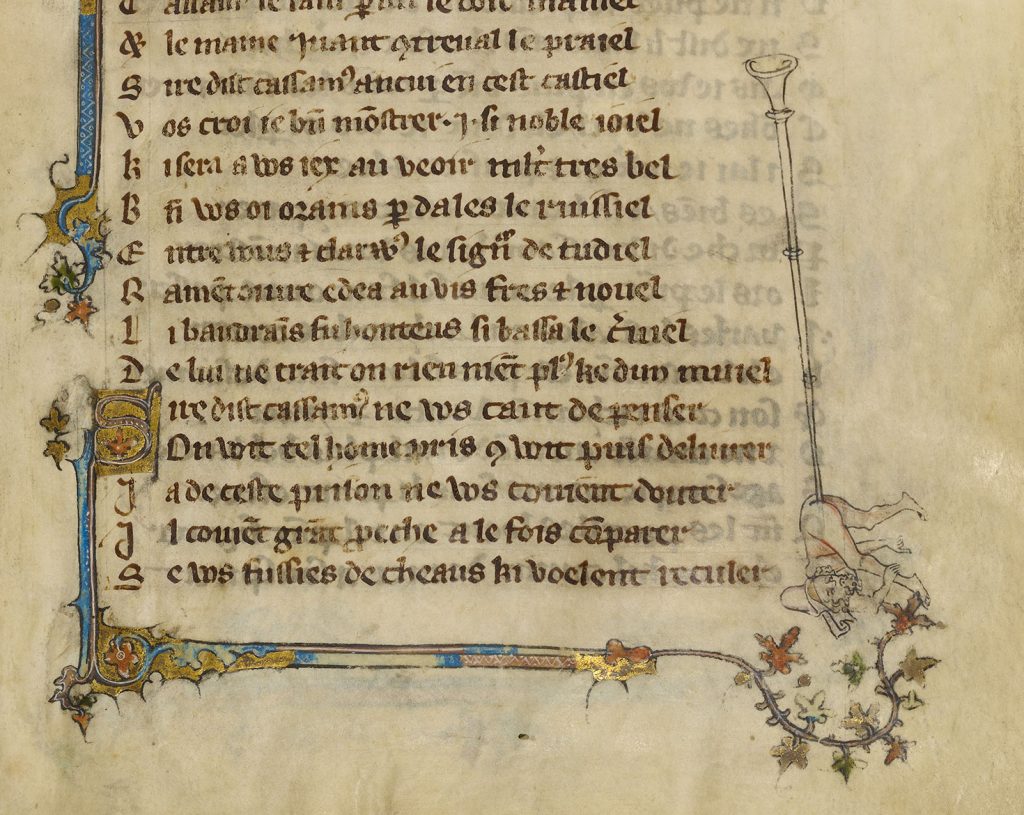 & le maine
S ire dist cassamus ancui en cest castiel
V os croi ie bn̄ mōstrer · j · si noble ioiel
k i sera a vos iex au veoir ml't tres bel
B n̄ vos oi orains p dales le ruissiel
E ntre vous ⁊ clarvꝰ le sign̄ de tudiel
R amētoivre edea au vis fres ⁊ nouel
L i baudrais fu honteus si bassa le
D e lui ne trait on rien niēt plꝰ ke dun mutel
S ire dist cassamꝰ ne vos caut de penser
On voit tel home pris ꝯ voit puis deliurer
J a de ceste prison ne vos couient douter
J l couiēt grāt peche a le fois cōparer
S e vos fussies de cheaus ki voelent reculer